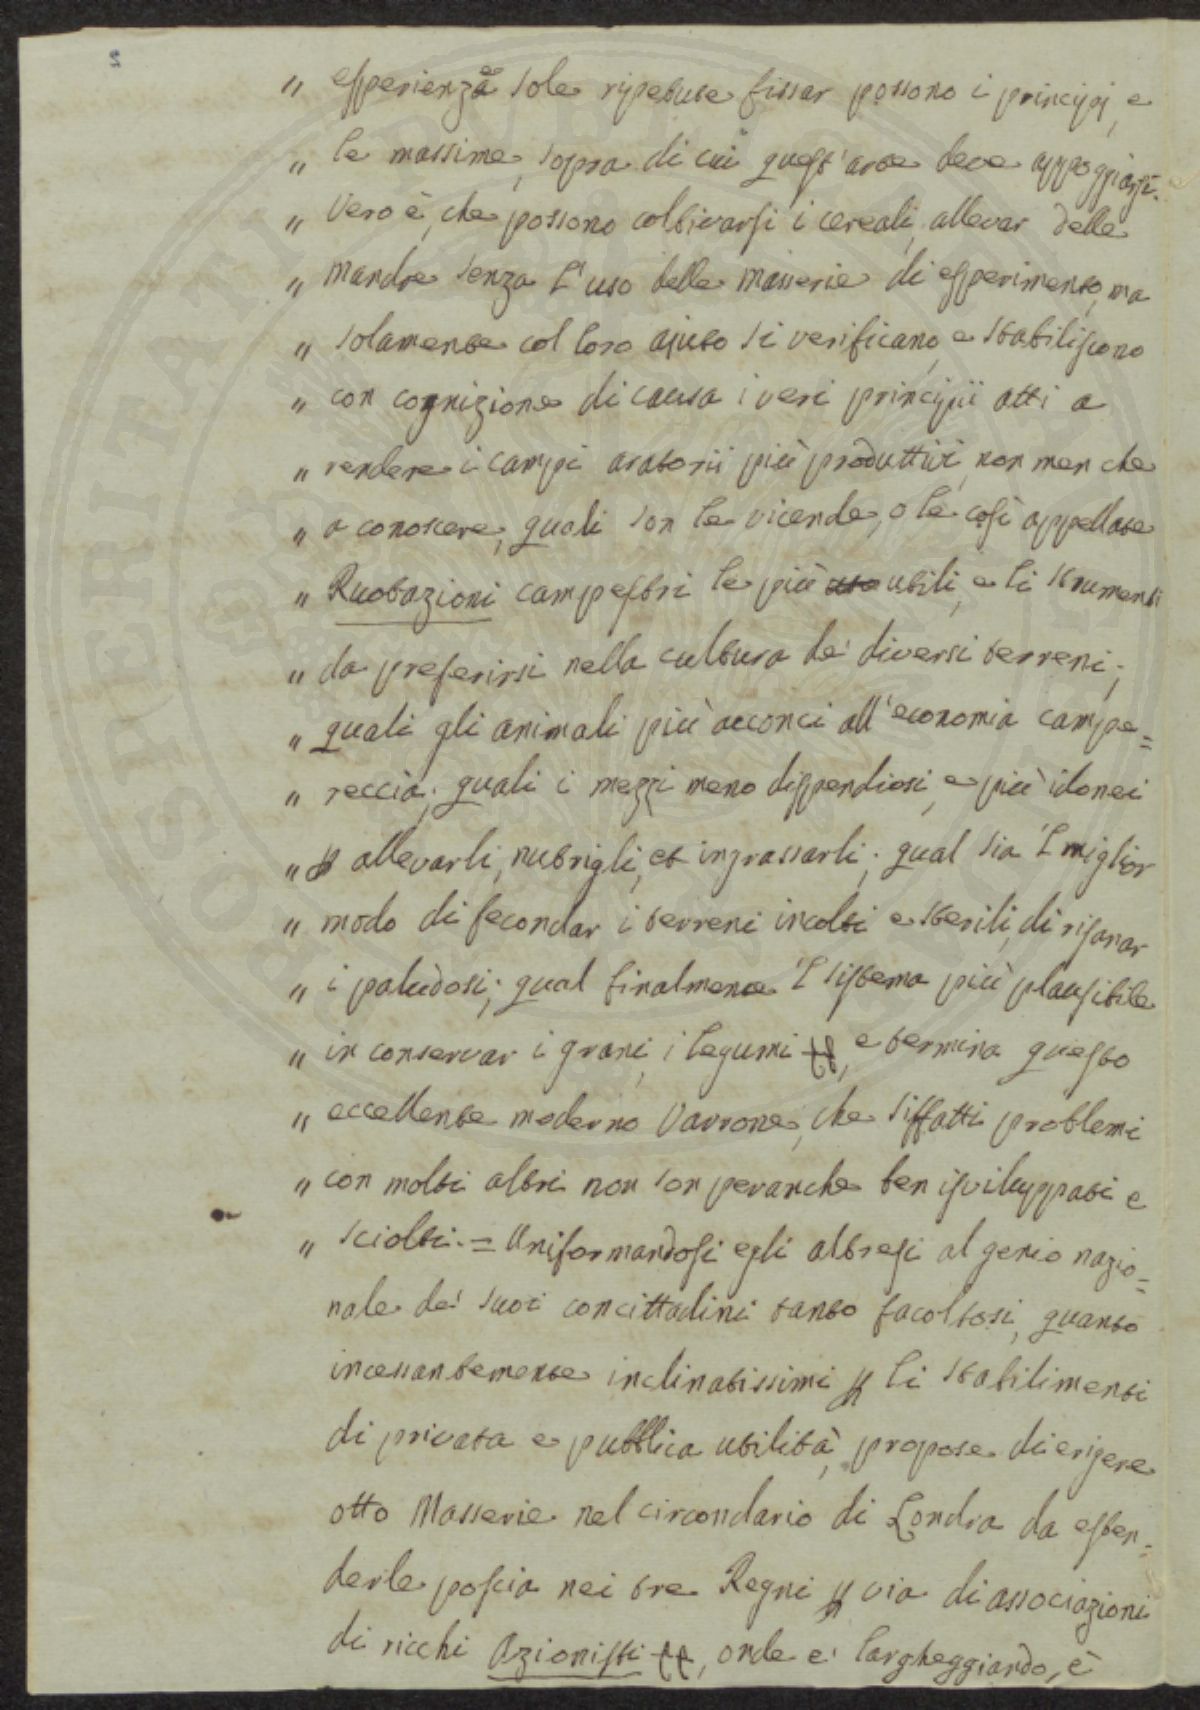 2
„ esperienze sole ripetute fissar possono i principj, e
„ le massime, sopra di cui quest'arte deve appoggiarsi.
„ Vero è, che possono coltivarsi i cereali, allevar delle
„ mandre senza l'uso delle masserie di esperimento, ma
„ solamente col loro ajuto si verificano, e stabiliscono
„ con cognizione di causa i veri principii atti a
„ rendere i campi aratorii più produttivi, non men che
„ a conoscere, quali son le vicende, o le così appellate
„ Ruotazioni campestri le più utili, e li strumenti
„ da preferirsi nella cultura de' diversi terreni;
„ quali gli animali più acconci all'economia campe=
„ reccia; quali i mezzi meno dispendiosi, e più idonei
„ allevarli, nutrigli, et ingrassarli; qual sia 'l miglior
„ modo di fecondar i terreni incolti e sterili, di risanar
„ i paludosi; qual finalmente 'l sistema più plausibile
„ in conservar i grani, i legumi, e termina questo
„ eccellente moderno Varrone, che siffatti problemi
„ con molti altri non son peranche ben isviluppati e
„ sciolti. = Uniformandosi egli altresi al genio nazio=
nale de' suoi concittadini tanto facoltosi, quanto
incessantemente inclinatissimi li stabilimenti
di privata e pubblica utilità, propose di erigere
otto Masserie nel circondario di Londra da esten=
derle poscia nei tre Regni via di associazioni
di ricchi Azionisti, onde e' largheggiando, è